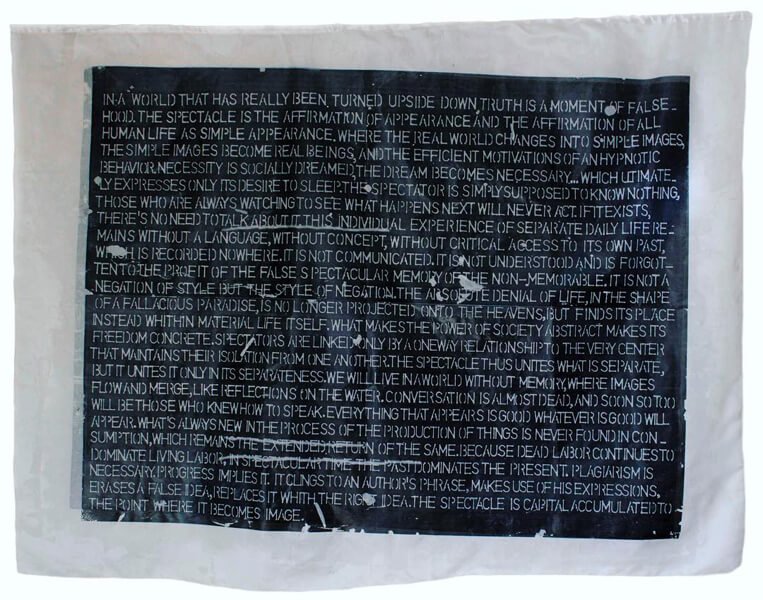 IN A WORLD THAT HAS REALLY BEEN TURNED UPSIDE DOWN,TRUTH IS A MOMENT OF FALSE-
HOOD. THE SPECTACLE IS THE AFFIRMATION OF APPEARANCE AND THE AFFIRMATION OF ALL
HUMAN LIFE AS SIMPLE APPEARANCE. WHERE THE REAL WORLD CHANGES INTO SIMPLE IMAGES,
THE SIMPLE IMAGES BECOME REAL BEINGS, AND THE EFFICIENT MOTIVATIONS OF AN HYPNOTIC
BEHAVIOR.NECESSITY IS SOCIALLY DREAMED,THE DREAM BECOMES NECESSARY... WHICH ULTIMATE-
LY EXPRESSES ONLY ITS DESIRE TO SLEEP.THE SPECTATOR IS SIMPLY SUPPOSED TO KNOW NOTHING,
THOSE WHO ARE ALWAYS WATCHING TO SEE WHAT HAPPENS NEXT WILL NEVER ACT. IF IT EXISTS,
THERE'S NO NEED TO TALK ABOUT IT. THIS INDIVIDUAL EXPERIENCE OF SEPARATE DAILY LIFE RE-
MAINS WITHOUT A LANGUAGE, WITHOUT CONCEPT, WITHOUT CRITICAL ACCESS TO ITS OWN PAST,
WHICH IS RECORDED NOWHERE. IT IS NOT COMMUNICATED. IT IS NOT UNDERSTOOD AND IS FORGOT-
TEN TO THE PROFIT OF THE FALSE SPECTACULAR MEMORY OF THE NON-MEMORABLE. IT IS NOT A
NEGATION OF STYLE BUT THE STYLE OF NEGATION.THE ABSOLUTE DENIAL OF LIFE, IN THE SHAPE
OF A FALLACIOUS PARADISE, IS NO LONGER PROJECTED ONTO THE HEAVENS, BUT FINDS ITS PLACE
INSTEAD WHITHIN MATERIAL LIFE ITSELF. WHAT MAKES THE POWER OF SOCIETY ABSTRACT MAKES ITS
FREEDOM CONCRETE. SPECTATORS ARE LINKED ONLY BY A ONEWAY RELATIONSHIP TO THE VERY CENTER
THAT MAINTAINS THEIR ISOLATION FROM ONE ANOTHER.THE SPECTACLE THUS UNITES WHAT IS SEPARATE,
BUT IT UNITES IT ONLY IN ITS SEPARATENESS.WE WILL LIVE IN A WORLD WITHOUT MEMORY, WHERE IMAGES
FLOW AND MERGE, LIKE REFLECTIONS ON THE WATER. CONVERSATION IS ALMOST DEAD, AND SOON SO TOO
WILL BE THOSE WHO KNEW HOW TO SPEAK. EVERYTHING THAT APPEARS IS GOOD WHATEVER IS GOOD WILL
APPEAR. WHAT'S ALWAYS NEW IN THE PROCESS OF THE PRODUCTION OF THINGS IS NEVER FOUND IN CON-
SUMPTION, WHICH REMAINS THE EXTENDED RETURN OF THE SAME. BECAUSE DEAD LABOR CONTINUES TO
DOMINATE LIVING LABOR, IN SPECTACULAR TIME THE PAST DOMINATES THE PRESENT. PLAGIARISM IS
NECESSARY. PROGRESS IMPLIES IT. IT CLINGS TO AN AUTHOR'S PHRASE, MAKES USE OF HIS EXPRESSIONS,
ERASES A FALSE IDEA, REPLACES IT WHITH THE RIGHT IDEA. THE SPECTACLE IS CAPITAL ACCUMULATED TO
THE POINT WHERE IT BECOMES IMAGE.